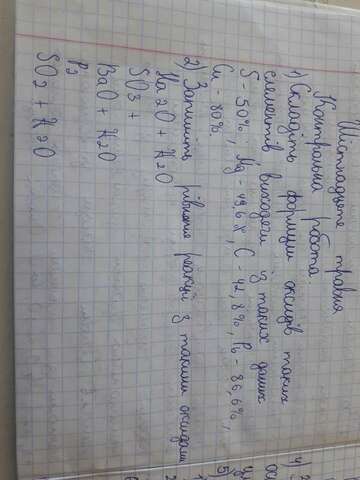 Шістнадцяте травня
Контрольна робота.
1) Складіть формули оксидів таких
елементів, виходячи із таких даних
S - 50%, Mg - 49,6%, C - 42,8%, Pb - 86,6%,
Cu - 80%.
2) Запишіть рівняння реакцій з такими оксидами
Na2O + H2O
SO3 +
BaO + H2O
P2
SO2 + H2O
4)
5)